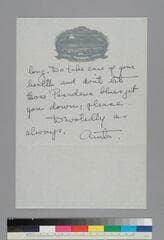 long. Do take care of your
health and don't let
those Pasadena blues get
you down, please.
Devotedly as
always,
Anita.